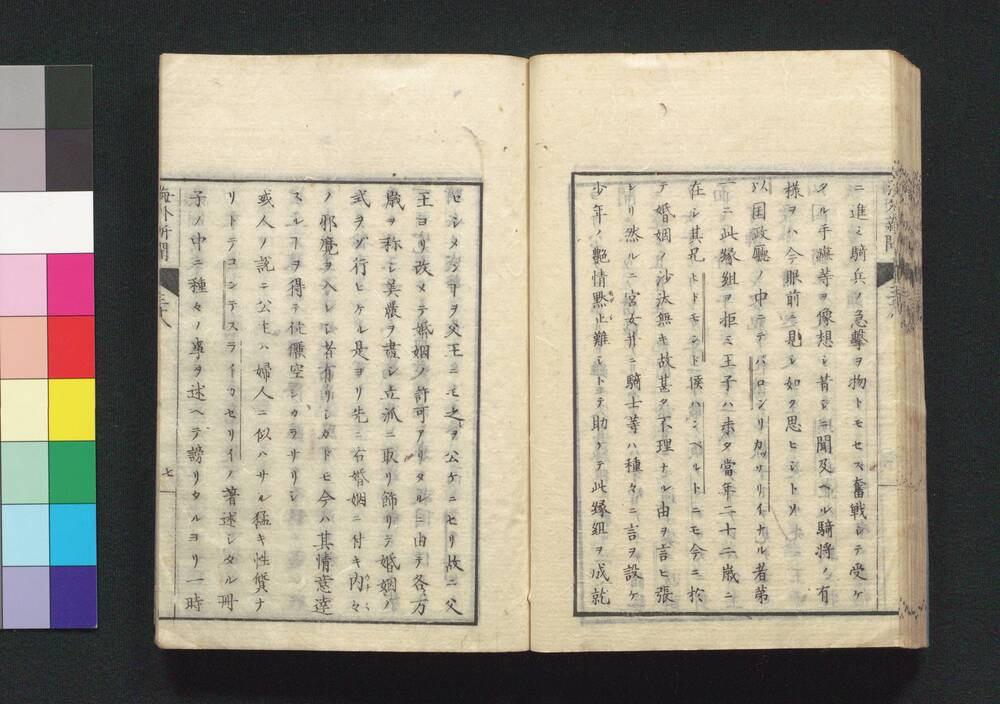 ニ進ミ騎兵ノ急撃ヲ物トモセス奮戦シテ受ケ
タル手痍等ヲ像想シ昔シニ聞及ヘル騎将ノ有
様ヲハ今眼前ニ見シ如ク思ヒシトソ
以国政廳ノ中ニテバロンリカッサリイナル者第
一ニ此縁組ヲ拒ミ王子ハ未タ當年二十二歳ニ
在シ其兄トドモンド侯ハンベルトニモ今ニ於
テ婚姻ノ沙汰無キ故甚タ不理ナル由ヲ言ヒ張
レリ然ルニ宮女并ニ騎士等ハ種々ニ言ヲ設ケ
少年ノ艶情黙止難シトテ助ケテ此縁組ヲ成就
セシメシヿヲ父王ニモ之ヲ公ケニセリ故ニ父
王ヨリ改メテ婚姻ノ許可アリタルニ由テ各万
歳ヲ称シ美麗ヲ盡シ立派ニ取リ飾リテ婚姻ノ
式ヲソ行ヒケル是ヨリ先ニ右婚姻ニ付キ内々
ノ邪魔ヲ入レシ者有リシカドモ今ハ其情意達
スルヿヲ得テ従懭空シカラサリシ
或人ノ説ニ公主ハ婦人ニ似ハサル猛キ性質ナ
リトテノコンテスライカセリイノ著述シタル冊
子ノ中ニ種々ノ事ヲ述ヘテ謗リタルヨリ一時
海外新聞
三十八
七